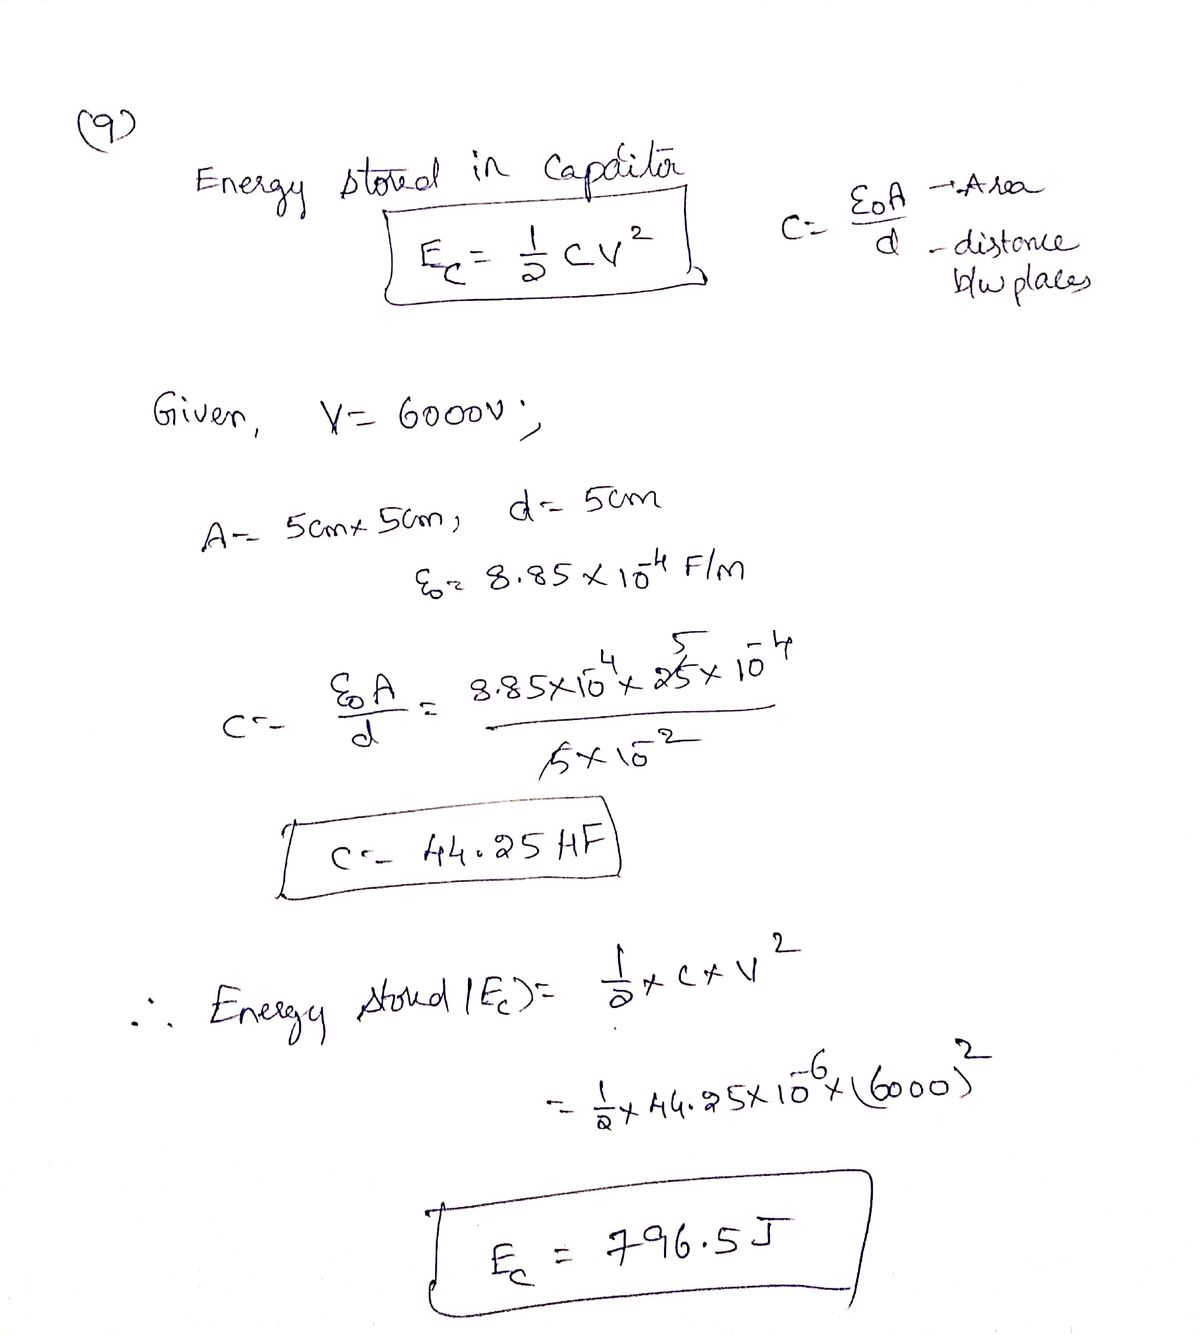 (9)
Energy stored in Capacitor
E_C = 1/2 CV²
C = ε₀A/d → Area
- distance
b/w places
Given, V = 6000V;
A = 5cm × 5cm, d = 5cm
ε₀ = 8.85 × 10⁻⁴ F/m
C = ε₀A/d = 8.85×10⁻⁴ × 25 × 10⁻⁴ / 5×10⁻²
5
C = 44.25 μF
∴ Energy stored (E_C) = 1/2 × C × V²
= 1/2 × 44.25 × 10⁻⁶ × (6000)²
E_C = 796.5 J